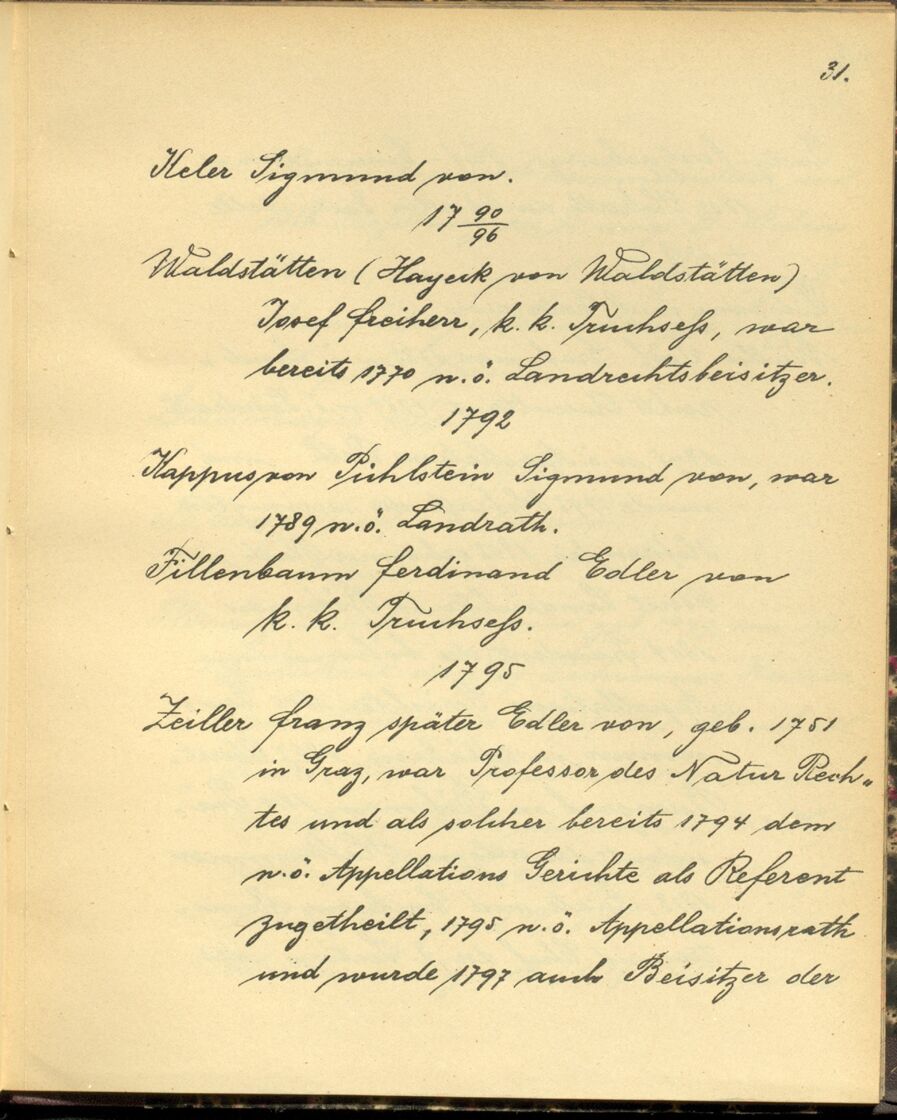 31.
Keler Sigmund von.
17 90/96
Waldstätten (Hayeck von Waldstätten)
Josef Freiherr, k. k. Truchseß, war
bereits 1770 n.ö. Landrechtsbeisitzer.
1792
Kappus von Pichlstein Sigmund von, war
1789 n.ö. Landrath.
Fillenbaum Ferdinand Edler von
k. k. Truchseß.
1795
Zeiller Franz später Edler von, geb. 1751
in Graz, war Professor des Natur Rech„
tes und als solcher bereits 1794 dem
n.ö. Appellations Gerichte als Referent
zugetheilt, 1795 n.ö. Appellationsrath
und wurde 1797 auch Beisitzer der